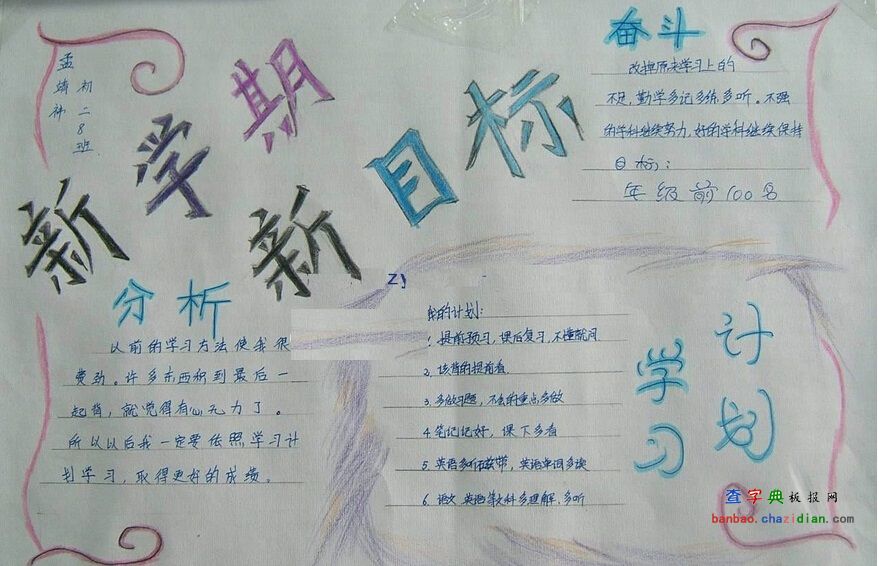 新学期
新目标
初二8班
孟靖
奋斗
改掉原来学习上的
不足,勤学多记多练多听。不强
的学科继续努力,好的学科继续保持
目标:
年级前100名
分析
以前的学习方法使我很
费劲。许多东西积到最后一
起背,就觉得有心无力了。
所以以后我一定要依照学习计
划学习,取得更好的成绩。
ZJ
我的计划:
1、提前预习,课后复习,不懂就问
2、该背的提前看
3、多做习题,不会的重点多做
4、笔记记好,课下多看
5、英语多听磁带,英语单词多读
6、语文,英语等大科多理解,多听
学习
计划
查字典板报网
banbao.chazidian.com